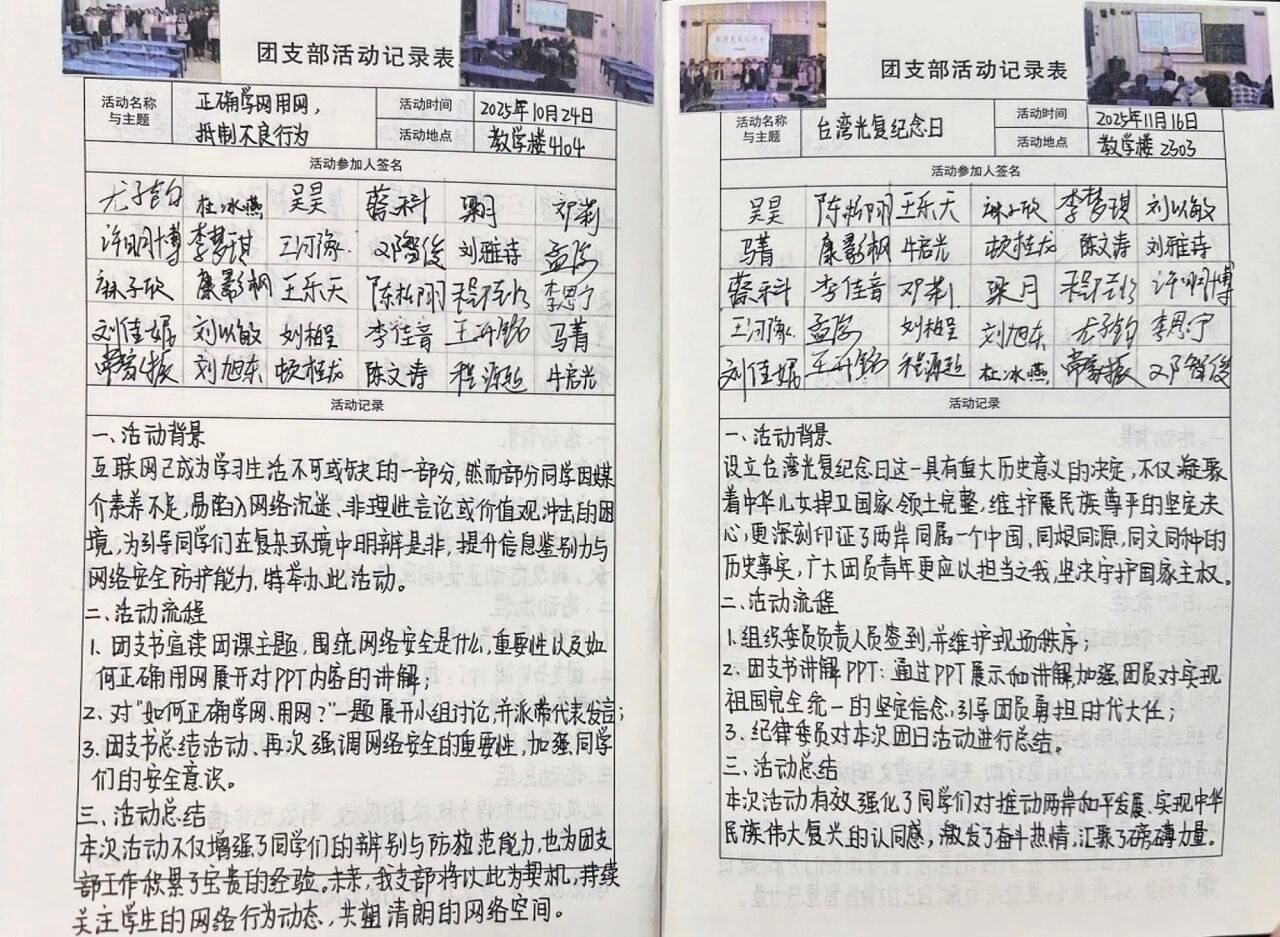 团支部活动记录表
活动名称与主题
正确学网用网，
抵制不良行为
活动时间
2025年10月24日
活动地点
教学楼4104
活动参加人签名
杜冰燕 吴昊 蔡禾科 梁月 邓莉
许明博 李梦琪 王河豫 邓智俊 刘雅诗 孟际
麻子欣 康影枫 王乐天 陈析翔 李思宁
刘佳妮 刘以敏 刘柏呈 李佳音 马菁
常家振 刘旭东 顿桂龙 陈文涛 程源远 牛启光
活动记录
一、活动背景
互联网已成为学习生活不可或缺的一部分，然而部分同学因媒
介素养不足，易陷入网络沉迷、非理性言论或价值观冲击的困
境，为引导同学们在复杂环境中明辨是非，提升信息鉴别力与
网络安全防护能力，特举办此活动。
二、活动流程
1. 团支书宣读团课主题，围绕网络安全是什么，重要性以及如
何正确用网展开对PPT内容的讲解；
2、对“如何正确学网、用网？”一题展开小组讨论，并派带代表发言；
3、团支书总结活动、再次强调网络安全的重要性，加强同学
们的安全意识。
三、活动总结
本次活动不仅增强了同学们的辨别与防范范能力，也为团支
部工作积累了宝贵的经验。未来，我支部将以此为契机，持续
关注学生的网络行为动态，共塑清朗的网络空间。
团支部活动记录表
活动名称与主题
台湾光复纪念日
活动时间
2025年11月16日
活动地点
教学楼2303
活动参加人签名
吴昊 陈析翔 王乐天 麻子欣 李梦琪 刘以敏
马菁 康影枫 牛启光 顿桂龙 陈文涛 刘雅诗
蔡禾科 李佳音 邓莉 梁月 许明博
王河豫 孟际 刘柏呈 刘旭东 李思宁
刘佳妮 程源远 杜冰燕 常家振 邓智俊
活动记录
一、活动背景
设立台湾光复纪念日这一具有重大历史意义的决定，不仅凝聚
着中华儿女捍卫国家领土完整，维护展民族尊严的坚定决
心，更深刻印证了两岸同属一个中国、同根同源，同文同种的
历史事实，广大团员青年更应以担当之我，坚决守护国家主权。
二、活动流程
1. 组织委员负责人员签到并维护现场秩序；
2. 团支书讲解PPT：通过PPT展示和讲解，加强团员对实现
祖国完全统一的坚定信念，引导团员勇担时代大任；
3、纪律委员对本次团日活动进行总结。
三、活动总结
本次活动有效强化了同学们对推动两岸和平发展、实现中华
民族伟大复兴的认同感，激发了奋斗热情，汇聚了磅礴力量。